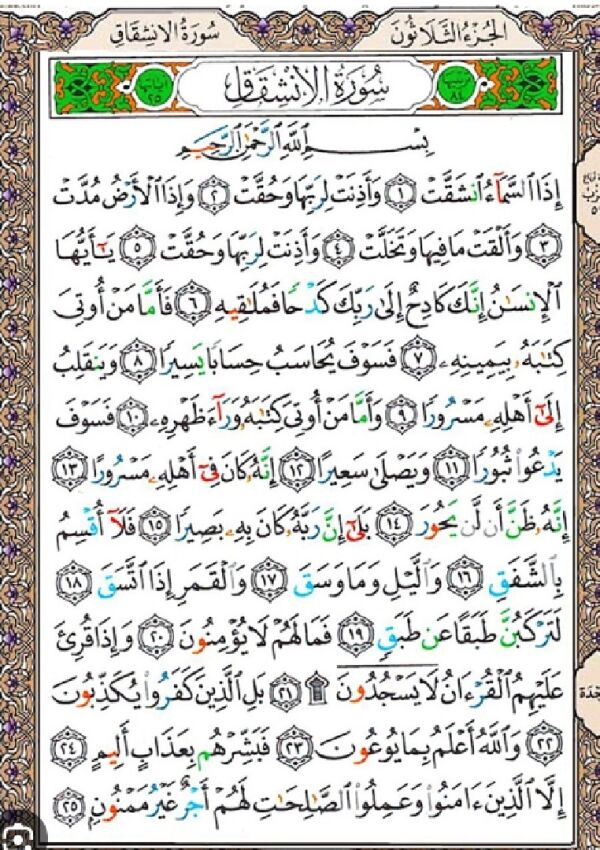 سُورَةُ الانْشِقَاقِ الجُزْءُ الثَّلَاثُونَ
آياتها ٢٥ سُورَةُ الِانْشِقَاقِ ترتيبها ٨٤
بِسْمِ اللَّهِ الرَّحْمَٰنِ الرَّحِيمِ
إِذَا السَّمَآءُ انشَقَّتْ ١ وَأَذِنَتْ لِرَبِّهَا وَحُقَّتْ ٢ وَإِذَا الْأَرْضُ مُدَّتْ
٣ وَأَلْقَتْ مَا فِيهَا وَتَخَلَّتْ ٤ وَأَذِنَتْ لِرَبِّهَا وَحُقَّتْ ٥ يَٰٓأَيُّهَا
الْإِنسَٰنُ إِنَّكَ كَادِحٌ إِلَىٰ رَبِّكَ كَدْحًا فَمُلَٰقِيهِ ٦ فَأَمَّا مَنْ أُوتِىَ
كِتَٰبَهُۥ بِيَمِينِهِۦ ٧ فَسَوْفَ يُحَاسَبُ حِسَابًا يَسِيرًا ٨ وَيَنقَلِبُ
إِلَىٰٓ أَهْلِهِۦ مَسْرُورًا ٩ وَأَمَّا مَنْ أُوتِىَ كِتَٰبَهُۥ وَرَآءَ ظَهْرِهِۦ ١٠ فَسَوْفَ
يَدْعُوا۟ ثُبُورًا ١١ وَيَصْلَىٰ سَعِيرًا ١٢ إِنَّهُۥ كَانَ فِىٓ أَهْلِهِۦ مَسْرُورًا ١٣
إِنَّهُۥ ظَنَّ أَن لَّن يَحُورَ ١٤ بَلَىٰٓ إِنَّ رَبَّهُۥ كَانَ بِهِۦ بَصِيرًا ١٥ فَلَآ أُقْسِمُ
بِالشَّفَقِ ١٦ وَالَّيْلِ وَمَا وَسَقَ ١٧ وَالْقَمَرِ إِذَا اتَّسَقَ ١٨
لَتَرْكَبُنَّ طَبَقًا عَن طَبَقٍ ١٩ فَمَا لَهُمْ لَا يُؤْمِنُونَ ٢٠ وَإِذَا قُرِئَ
عَلَيْهِمُ الْقُرْءَانُ لَا يَسْجُدُونَ ۩ ٢١ بَلِ الَّذِينَ كَفَرُوا۟ يُكَذِّبُونَ
٢٢ وَاللَّهُ أَعْلَمُ بِمَا يُوعُونَ ٢٣ فَبَشِّرْهُم بِعَذَابٍ أَلِيمٍ ٢٤
إِلَّا الَّذِينَ ءَامَنُوا۟ وَعَمِلُوا۟ الصَّٰلِحَٰتِ لَهُمْ أَجْرٌ غَيْرُ مَمْنُونٍ ٢٥